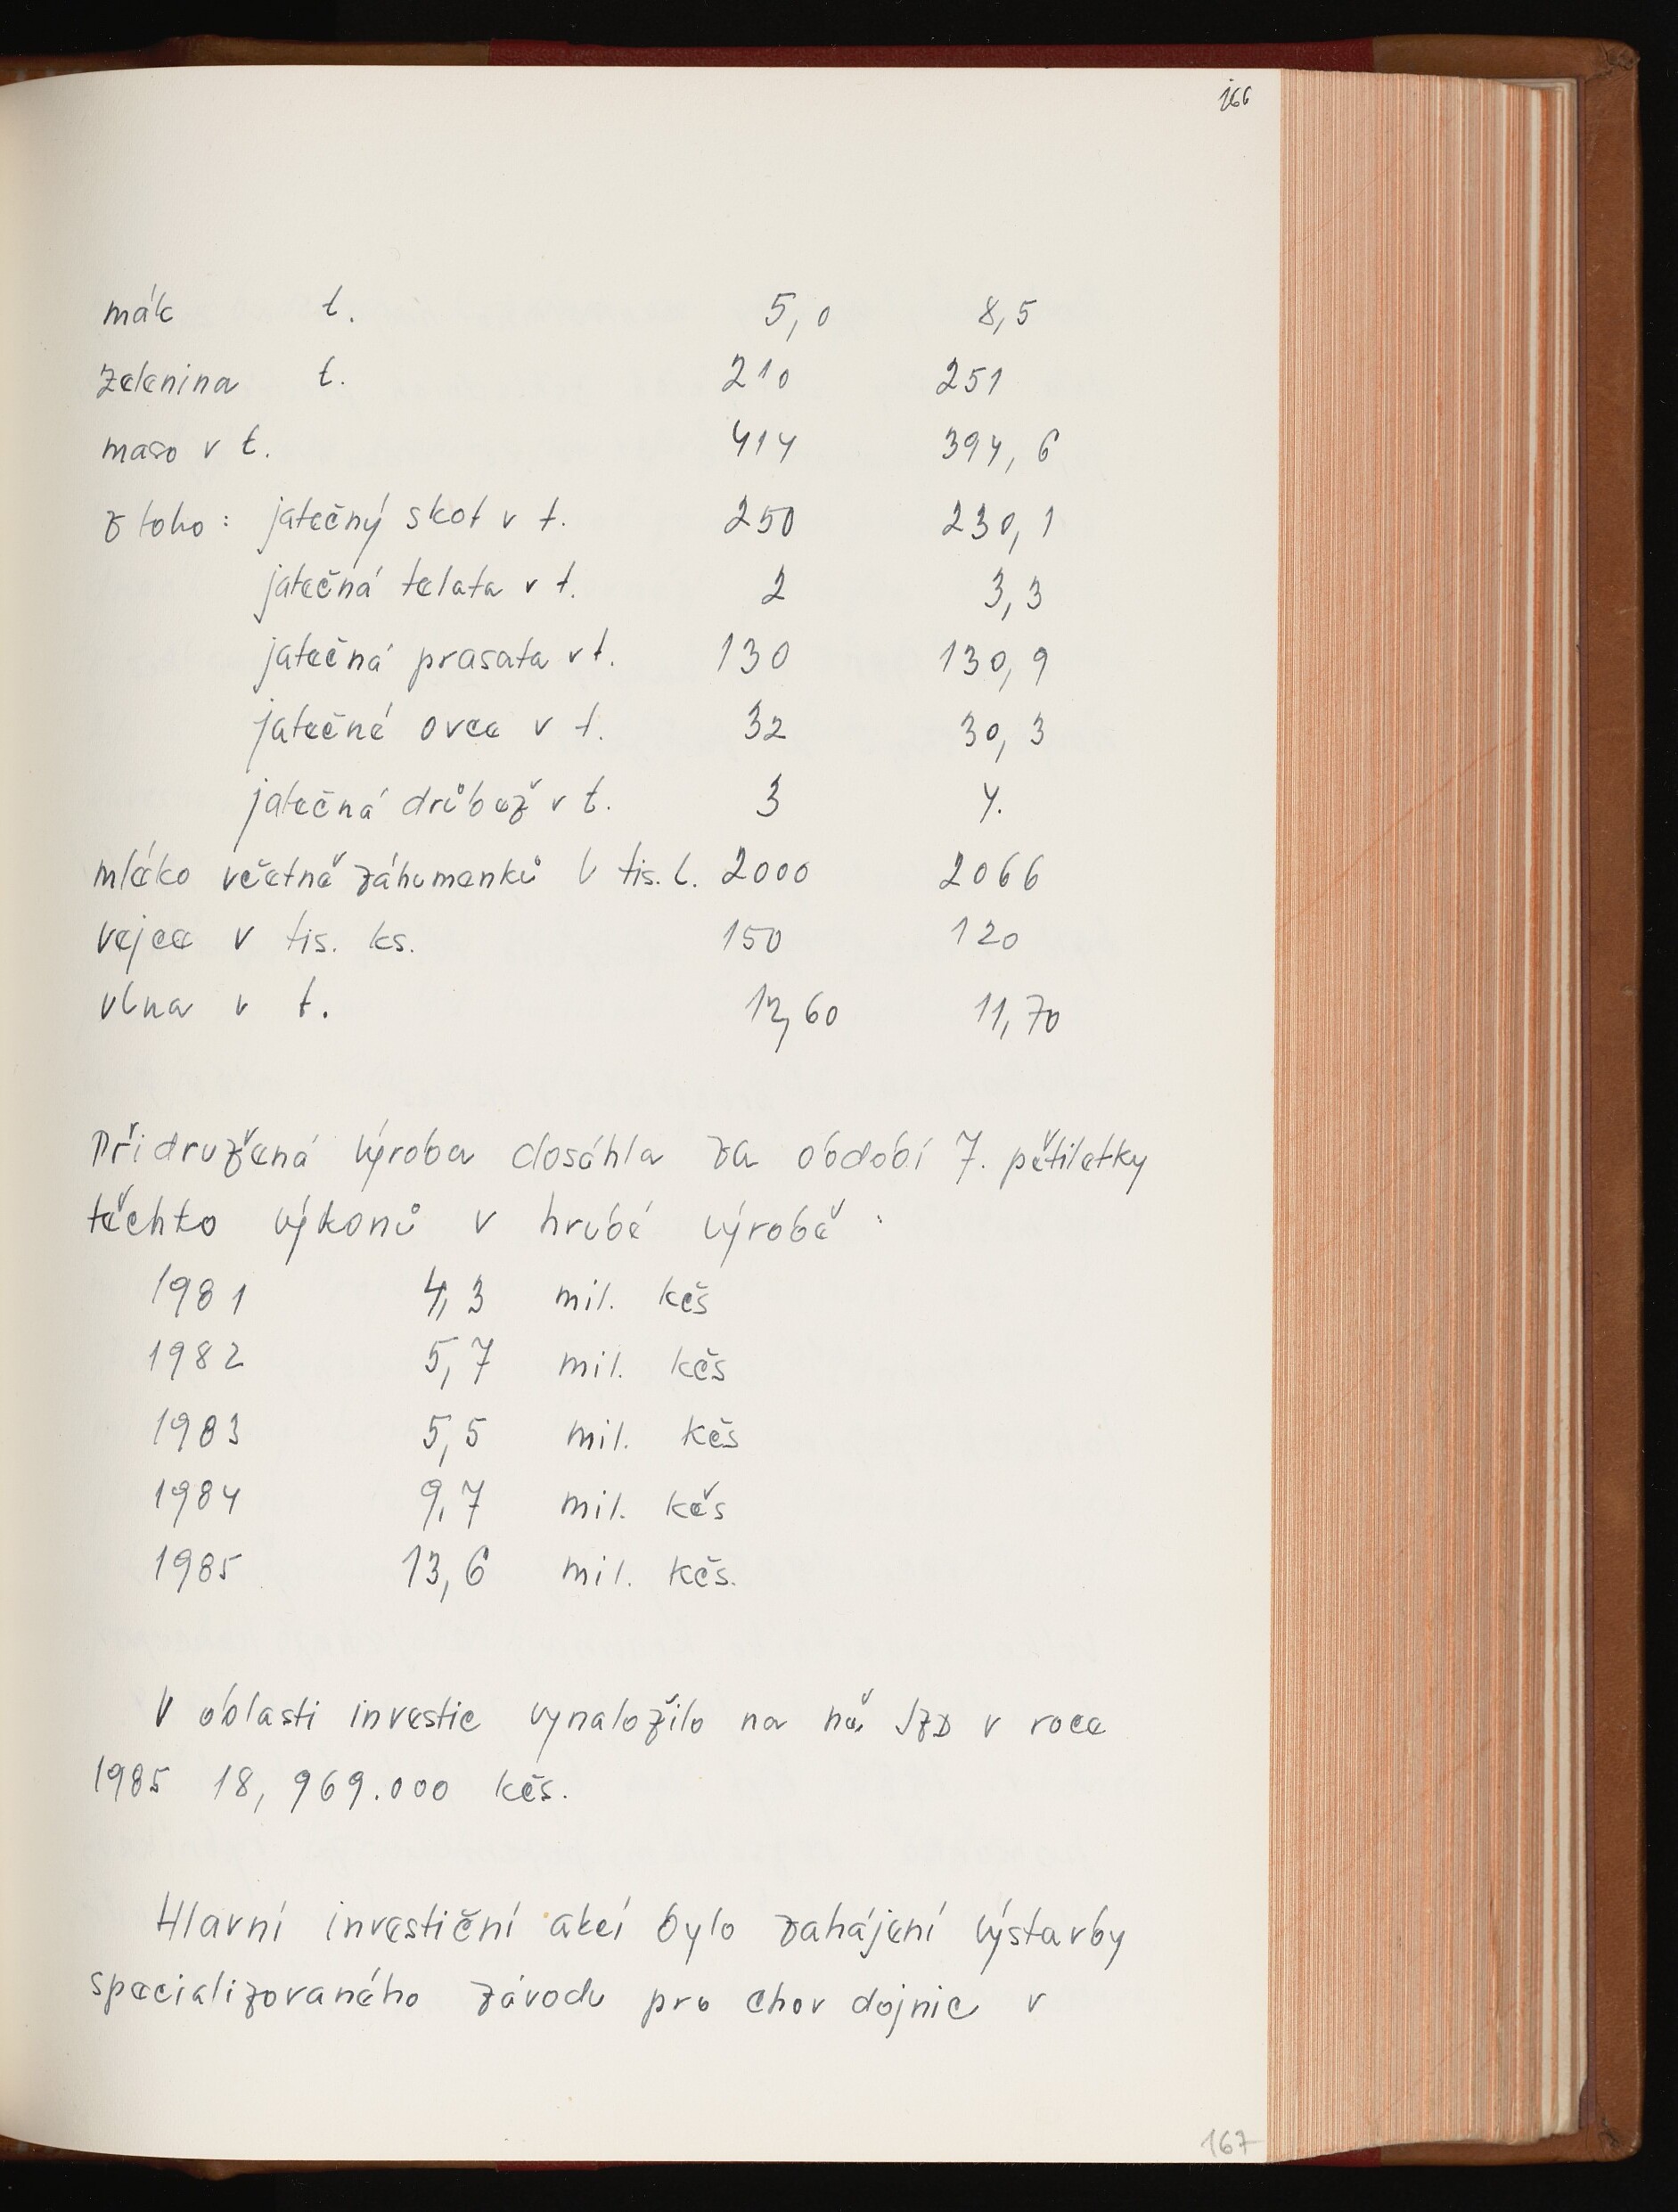 166
mák t. 5,0 8,5
zelenina t. 210 251
maso v t. 414 394,6
z toho: jatečný skot v t. 250 230,1
jatečná telata v t. 2 3,3
jatečná prasata v t. 130 130,9
jatečné ovce v t. 32 30,3
jatečná drůbež v t. 3 4.
mléko včetně záhumenků v tis. l. 2000 2066
vejce v tis. ks. 150 120
vlna v t. 12,60 11,70
Přidružená výroba dosáhla za období 7. pětiletky
těchto výkonů v hrubé výrobě:
1981 4,3 mil. kčs
1982 5,7 mil. kčs
1983 5,5 mil. kčs
1984 9,7 mil. kčs
1985 13,6 mil. kčs.
V oblasti investic vynaložilo na ně JZD v roce
1985 18,969.000 kčs.
Hlavní investiční akcí bylo zahájení výstavby
specializovaného závodu pro chov dojnic v
167